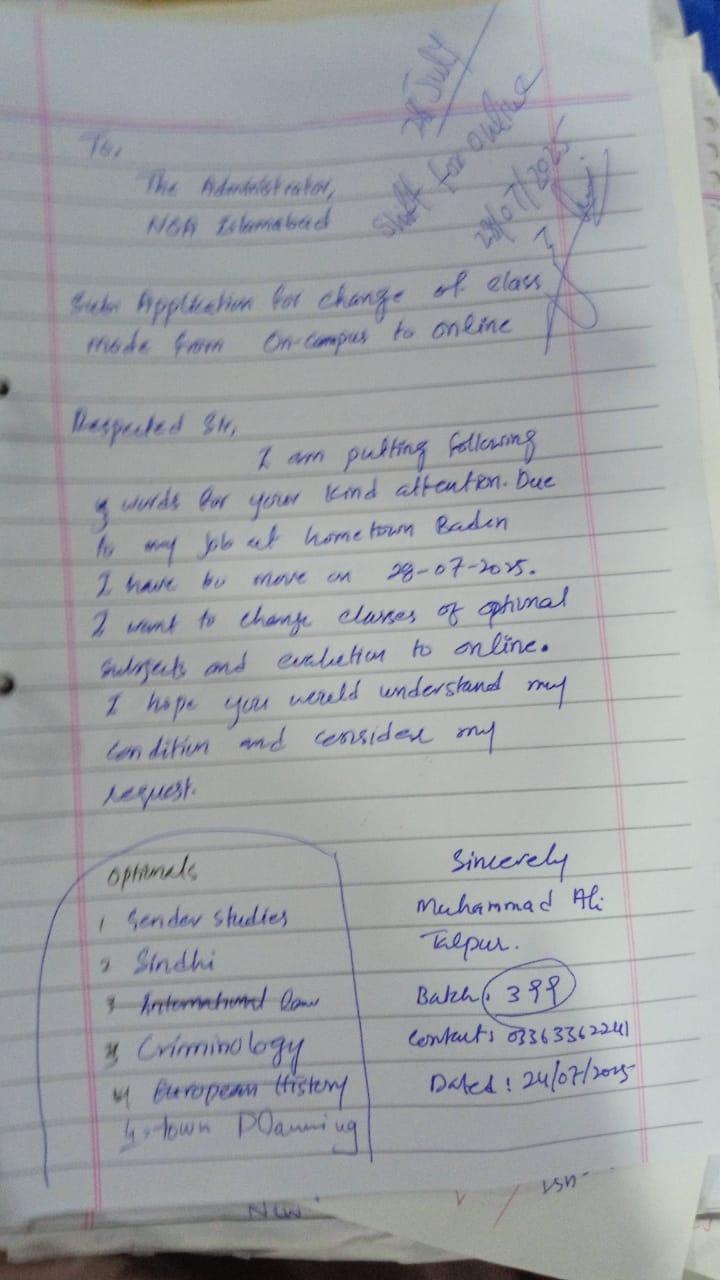 28 July
Shift for online
28/07/2025
To,
The Administrator,
NOA Islamabad
Sub: Application for change of class
mode from On-campus to online
Respected Sir,
I am putting following
words for your kind attention. Due
to my job at hometown Badin
I have to move on 28-07-2025.
I want to change classes of optional
subjects and evaluation to online.
I hope you would understand my
condition and consider my
request.
Optionals
1 Gender studies
2 Sindhi
3 International law
3 Criminology
4 European History
5. town Planning
Sincerely
Muhammad Ali
Talpur.
Batch: 399
Contact: 03363362241
Dated: 24/07/2025